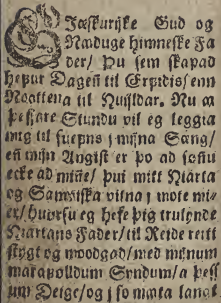 Giæskurijke Gud og
Naduge himneske Fa
der/ Þu sem skapad
hefur Dageñ til Erpidis/ enn
Noottena til Huijldar. Nu a
þessare Stundu vil eg leggia
mig til suefns j mijna Sæng/
eñ mijn Angist er þo ad sofna
ecke ad mijne/ þui mitt Hiarta
og Samviska vitna j mote mi-
er/ huorsu eg hefe þig trulynde
Hiartans Fader/ til Reide reitt
stygt og moodgad/ med mijnum
margfolldum Syndum/ a þess
um Deige/ og j so mata langa